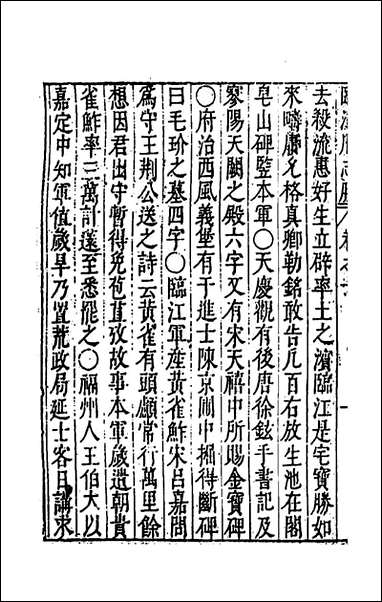 去殺流惠好生立辟率土之濱臨江是宅寶勝如
來疇庸允格真卿勒銘敢告凡百右放生池在閣
皂山碑監本軍〇天慶觀有後唐徐鉉手書記及
寥陽天闕之殿六字又有宋天禧中所賜金寶碑
〇府治西風義堡有于進士陳京闢中掘得斷碑
曰毛玠之墓四字〇臨江軍産黃雀鮓宋呂嘉問
為守王荆公送之詩云黃雀有頭顱常行萬里餘
想因君出守暫得免苞苴攷故事本軍歲遺朝貴
雀鮓率三萬計蘧至悉罷之〇福州人王伯大以
嘉定中知軍值歲旱乃置荒政局延士客日講求